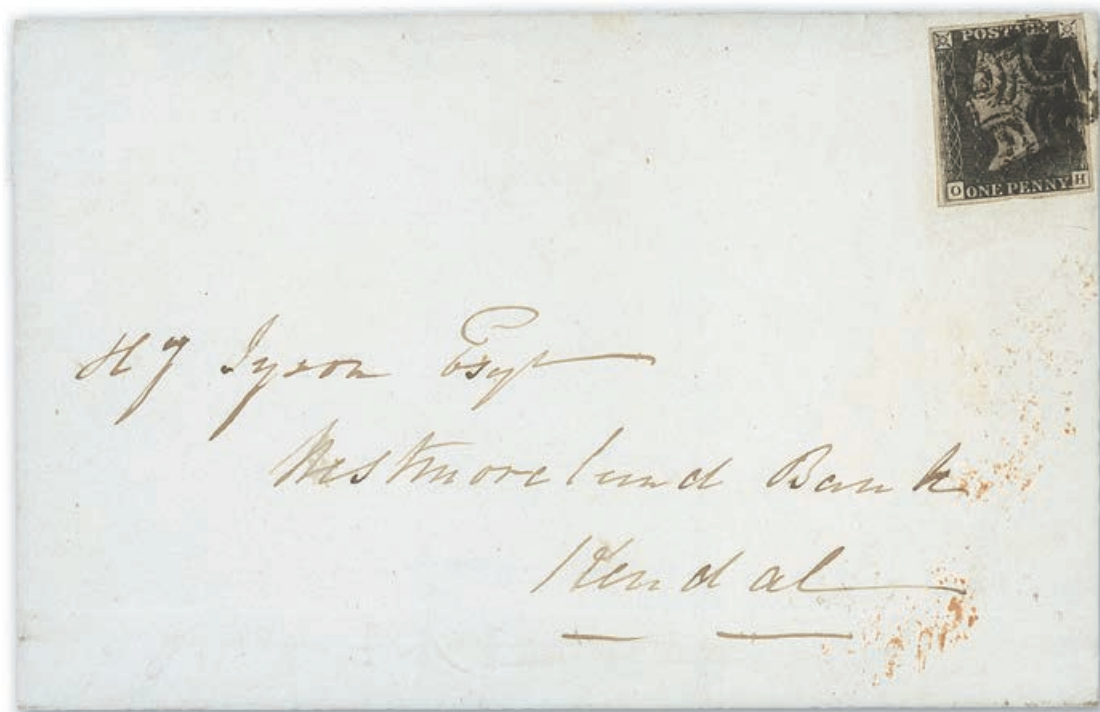 POSTAGE
O ONE PENNY H
Esqr
Westmoreland Bank
Kendal